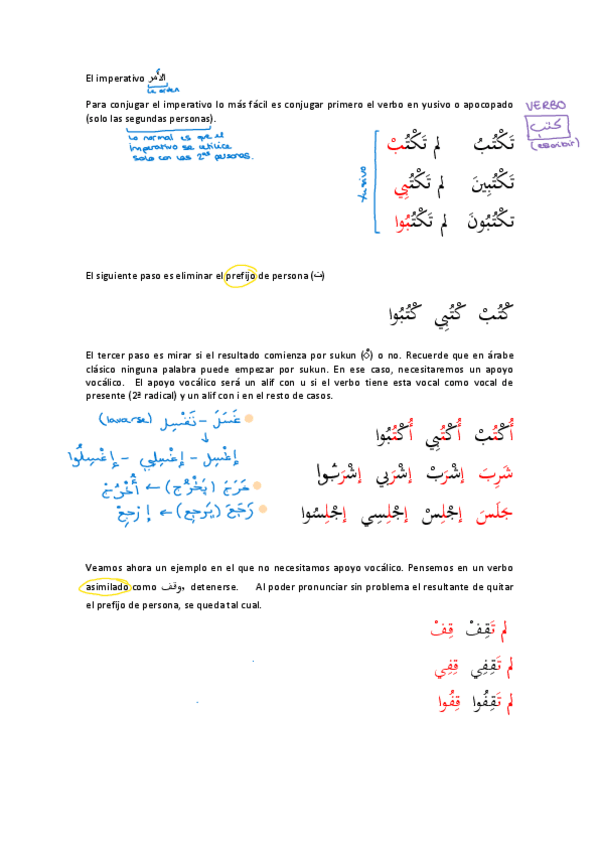 El imperativo الأَمْر
la orden
Para conjugar el imperativo lo más fácil es conjugar primero el verbo en yusivo o apocopado
(solo las segundas personas).
Lo normal es que el
imperativo se utilice
solo con las 2ᵃˢ personas.
VERBO
كتب
(escribir)
Yusivo
تَكْتُبُ لم تَكْتُبْ
تَكْتُبِينَ لم تَكْتُبِي
تكْتُبُونَ لم تَكْتُبُوا
El siguiente paso es eliminar el prefijo de persona (ت)
كْتُبْ كْتُبِي كْتُبُوا
El tercer paso es mirar si el resultado comienza por sukun (ْ) o no. Recuerde que en árabe
clásico ninguna palabra puede empezar por sukun. En ese caso, necesitaremos un apoyo
vocálico. El apoyo vocálico será un alif con u si el verbo tiene esta vocal como vocal de
presente (2ª radical) y un alif con i en el resto de casos.
غَسَلَ - تَغْسِل (lavarse)
إغْسِل - إغْسِلي - إغْسِلُوا
خَرَجَ (يَخْرُج) ← أُخْرُجْ
رَجَعَ (يَرجِع) ← إرجِعْ
أُكْتُبْ أُكْتُبِي أُكْتُبُوا
شَرِبَ إشْرَبْ إشْرَبِي إشْرَبُوا
جَلَسَ إجْلِسْ إجْلِسِي إجْلِسُوا
Veamos ahora un ejemplo en el que no necesitamos apoyo vocálico. Pensemos en un verbo
asimilado como وقف, detenerse. Al poder pronunciar sin problema el resultante de quitar
el prefijo de persona, se queda tal cual.
لم تَقِفْ قِفْ
لم تَقِفِي قِفِي
لم تَقِفُوا قِفُوا